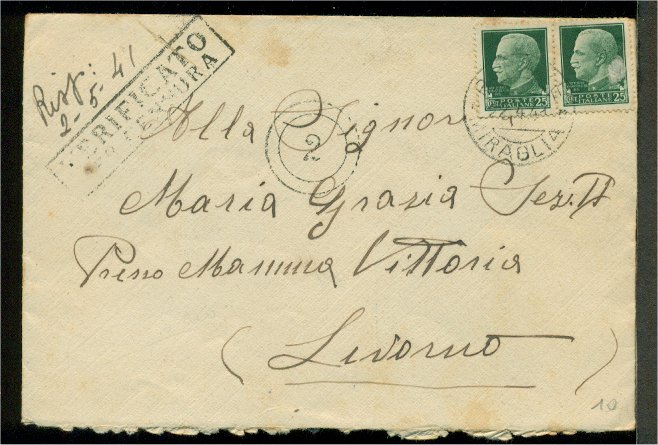 Risp:
2-5-41
VERIFICATO
CENSURA
POSTE
ITALIANE
25
POSTE
ITALIANE
25
2
Alla Signora
Maria Grazia
Presso Mamma Vittoria
(Livorno)
10